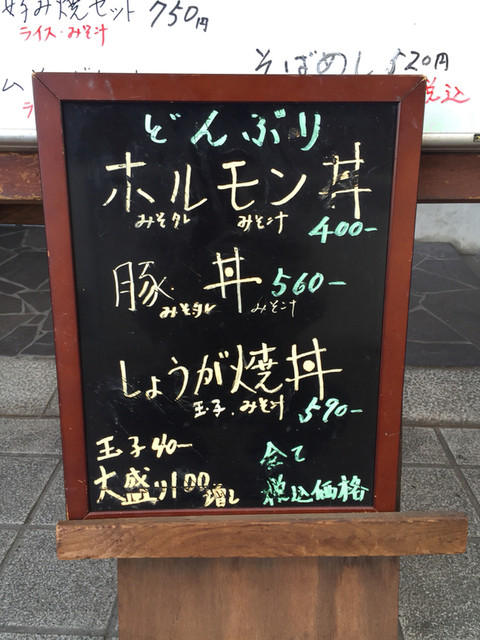 好み焼セット 750円
ライス・みそ汁
そばめし 520円
税込
どんぶり
ホルモン丼
みそタレ みそ汁 400-
豚丼 560-
みそタレ みそ汁
しょうが焼丼
玉子.みそ汁 590-
玉子 40-
大盛り100増し
全て
税込価格